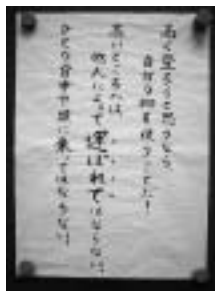 高く登ろうと思うなら、
自分の脚を使うことだ！
高いところへは、
他人によって運ばれてはならない。
ひとの背中や頭に乗ってはならない。